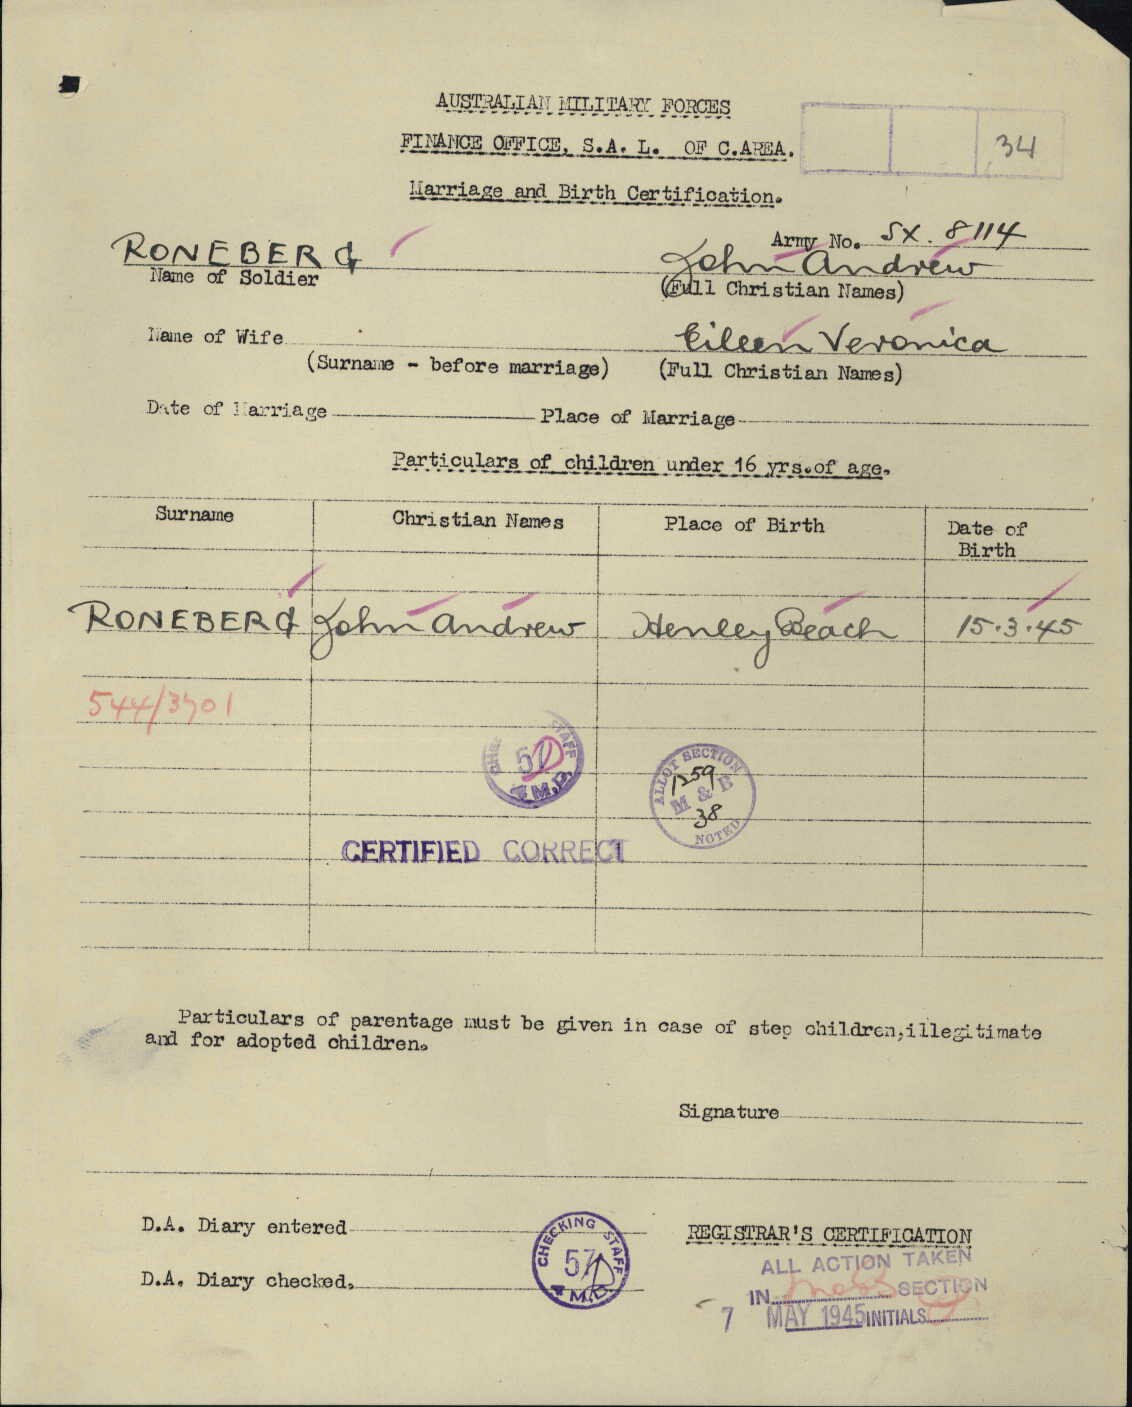 AUSTRALIAN MILITARY FORCES
FINANCE OFFICE, S.A. L. OF C.AREA.
34
Marriage and Birth Certification.
Army No. SX. 8114
RONEBERG John Andrew
Name of Soldier (Full Christian Names)
Name of Wife Eileen Veronica
(Surname - before marriage) (Full Christian Names)
Date of Marriage Place of Marriage
Particulars of children under 16 yrs.of age.
Surname Christian Names Place of Birth Date of
Birth
RONEBERG John Andrew Henley Beach 15.3.45
544/3701
CHECKING STAFF
57
4 M.D.
ALLOT SECTION
1259
M & B
38
NOTED
CERTIFIED CORRECT
Particulars of parentage must be given in case of step children,illegitimate
and for adopted children.
Signature
D.A. Diary entered
D.A. Diary checked.
CHECKING STAFF
57
4 M.D.
REGISTRAR'S CERTIFICATION
ALL ACTION TAKEN
IN SECTION
7 MAY 1945 INITIALS